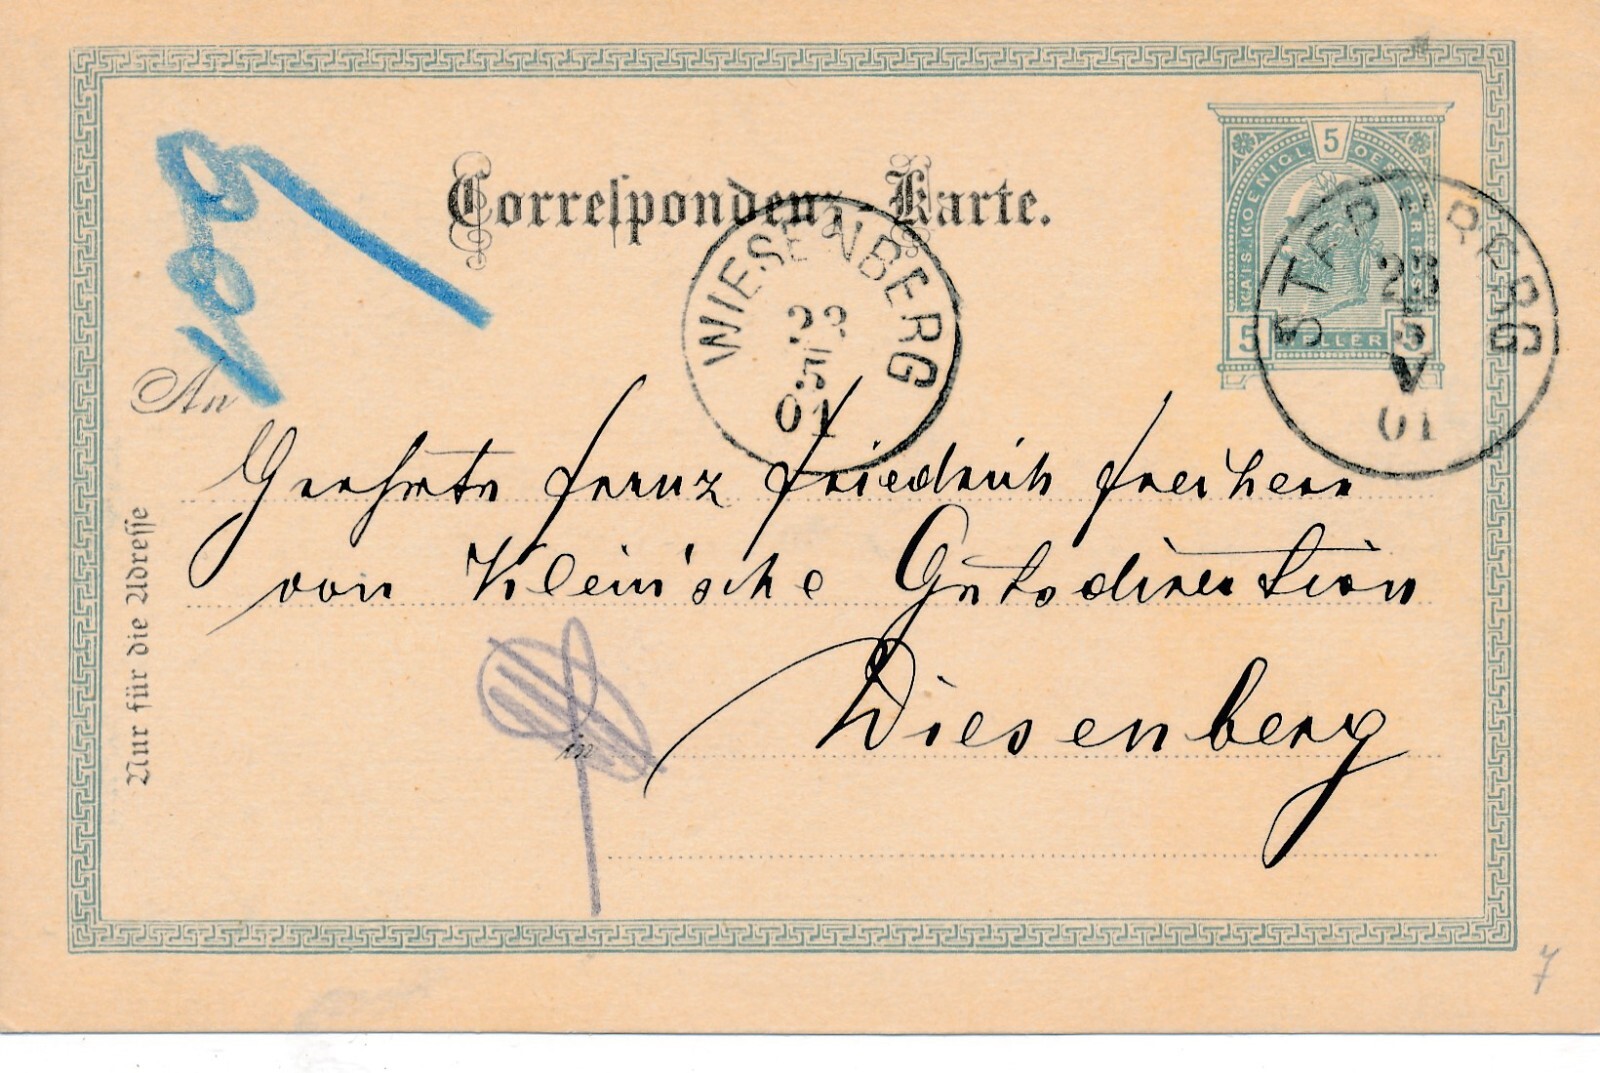 109
Correspondenz-Karte.
5
KAIS. KOENIGL. OESTERREICH
5 HELLER 5
WIESENBERG
01
STERNBERG
23
5
V
01
An
Geehrte Franz Friedrich Freiherr
von Klein'sche Gutsdirection
in Wiesenberg
Nur für die Adresse
7